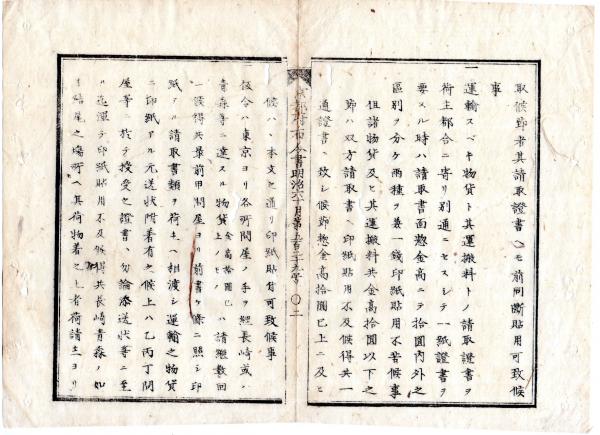 取候節者其請取證書ヘモ前同斷貼用可致候
事
一運輸スベキ物貨ト其運搬料トノ請取證書ヲ
荷主都合ニ寄リ別通ニセスシテ一紙證書ヲ
要スル時ハ請取書面惣金高ニテ拾圓内外之
區別ヲ分ケ兩種ヲ兼一錢印紙貼用不苦候事
但諸物貨及ヒ其運搬料共金高拾圓以下之
節ハ双方請取書ヘ印紙貼用不及候得共一
通證書ニ致シ候節惣金高拾圓已上ニ及ヒ
京都府布令書明治六年十月第五百三十九号 〇二
候ハヽ本文之通リ印紙貼付可致候事
假令ハ東京ヨリ各所問屋ノ手ヲ經長崎或ハ
青森等ニ達スル物貨金高拾圓已上ノモノハ請繼數回
ヲ渡得共最前甲問屋ヨリ前書ケ條ニ照シ印
紙アル請取書類ヲ荷主ヘ相渡シ運輸之物貨
ニ印紙アル元送状附着有之候上ハ乙丙丁問
屋等ニ於テ授受之證書ハ勿論添送状等ニ至
ル迄渾テ印紙貼用不及候得共長崎青森ノ如
キ結尾之場所ヘ其荷物着之上者荷請主ヨリ